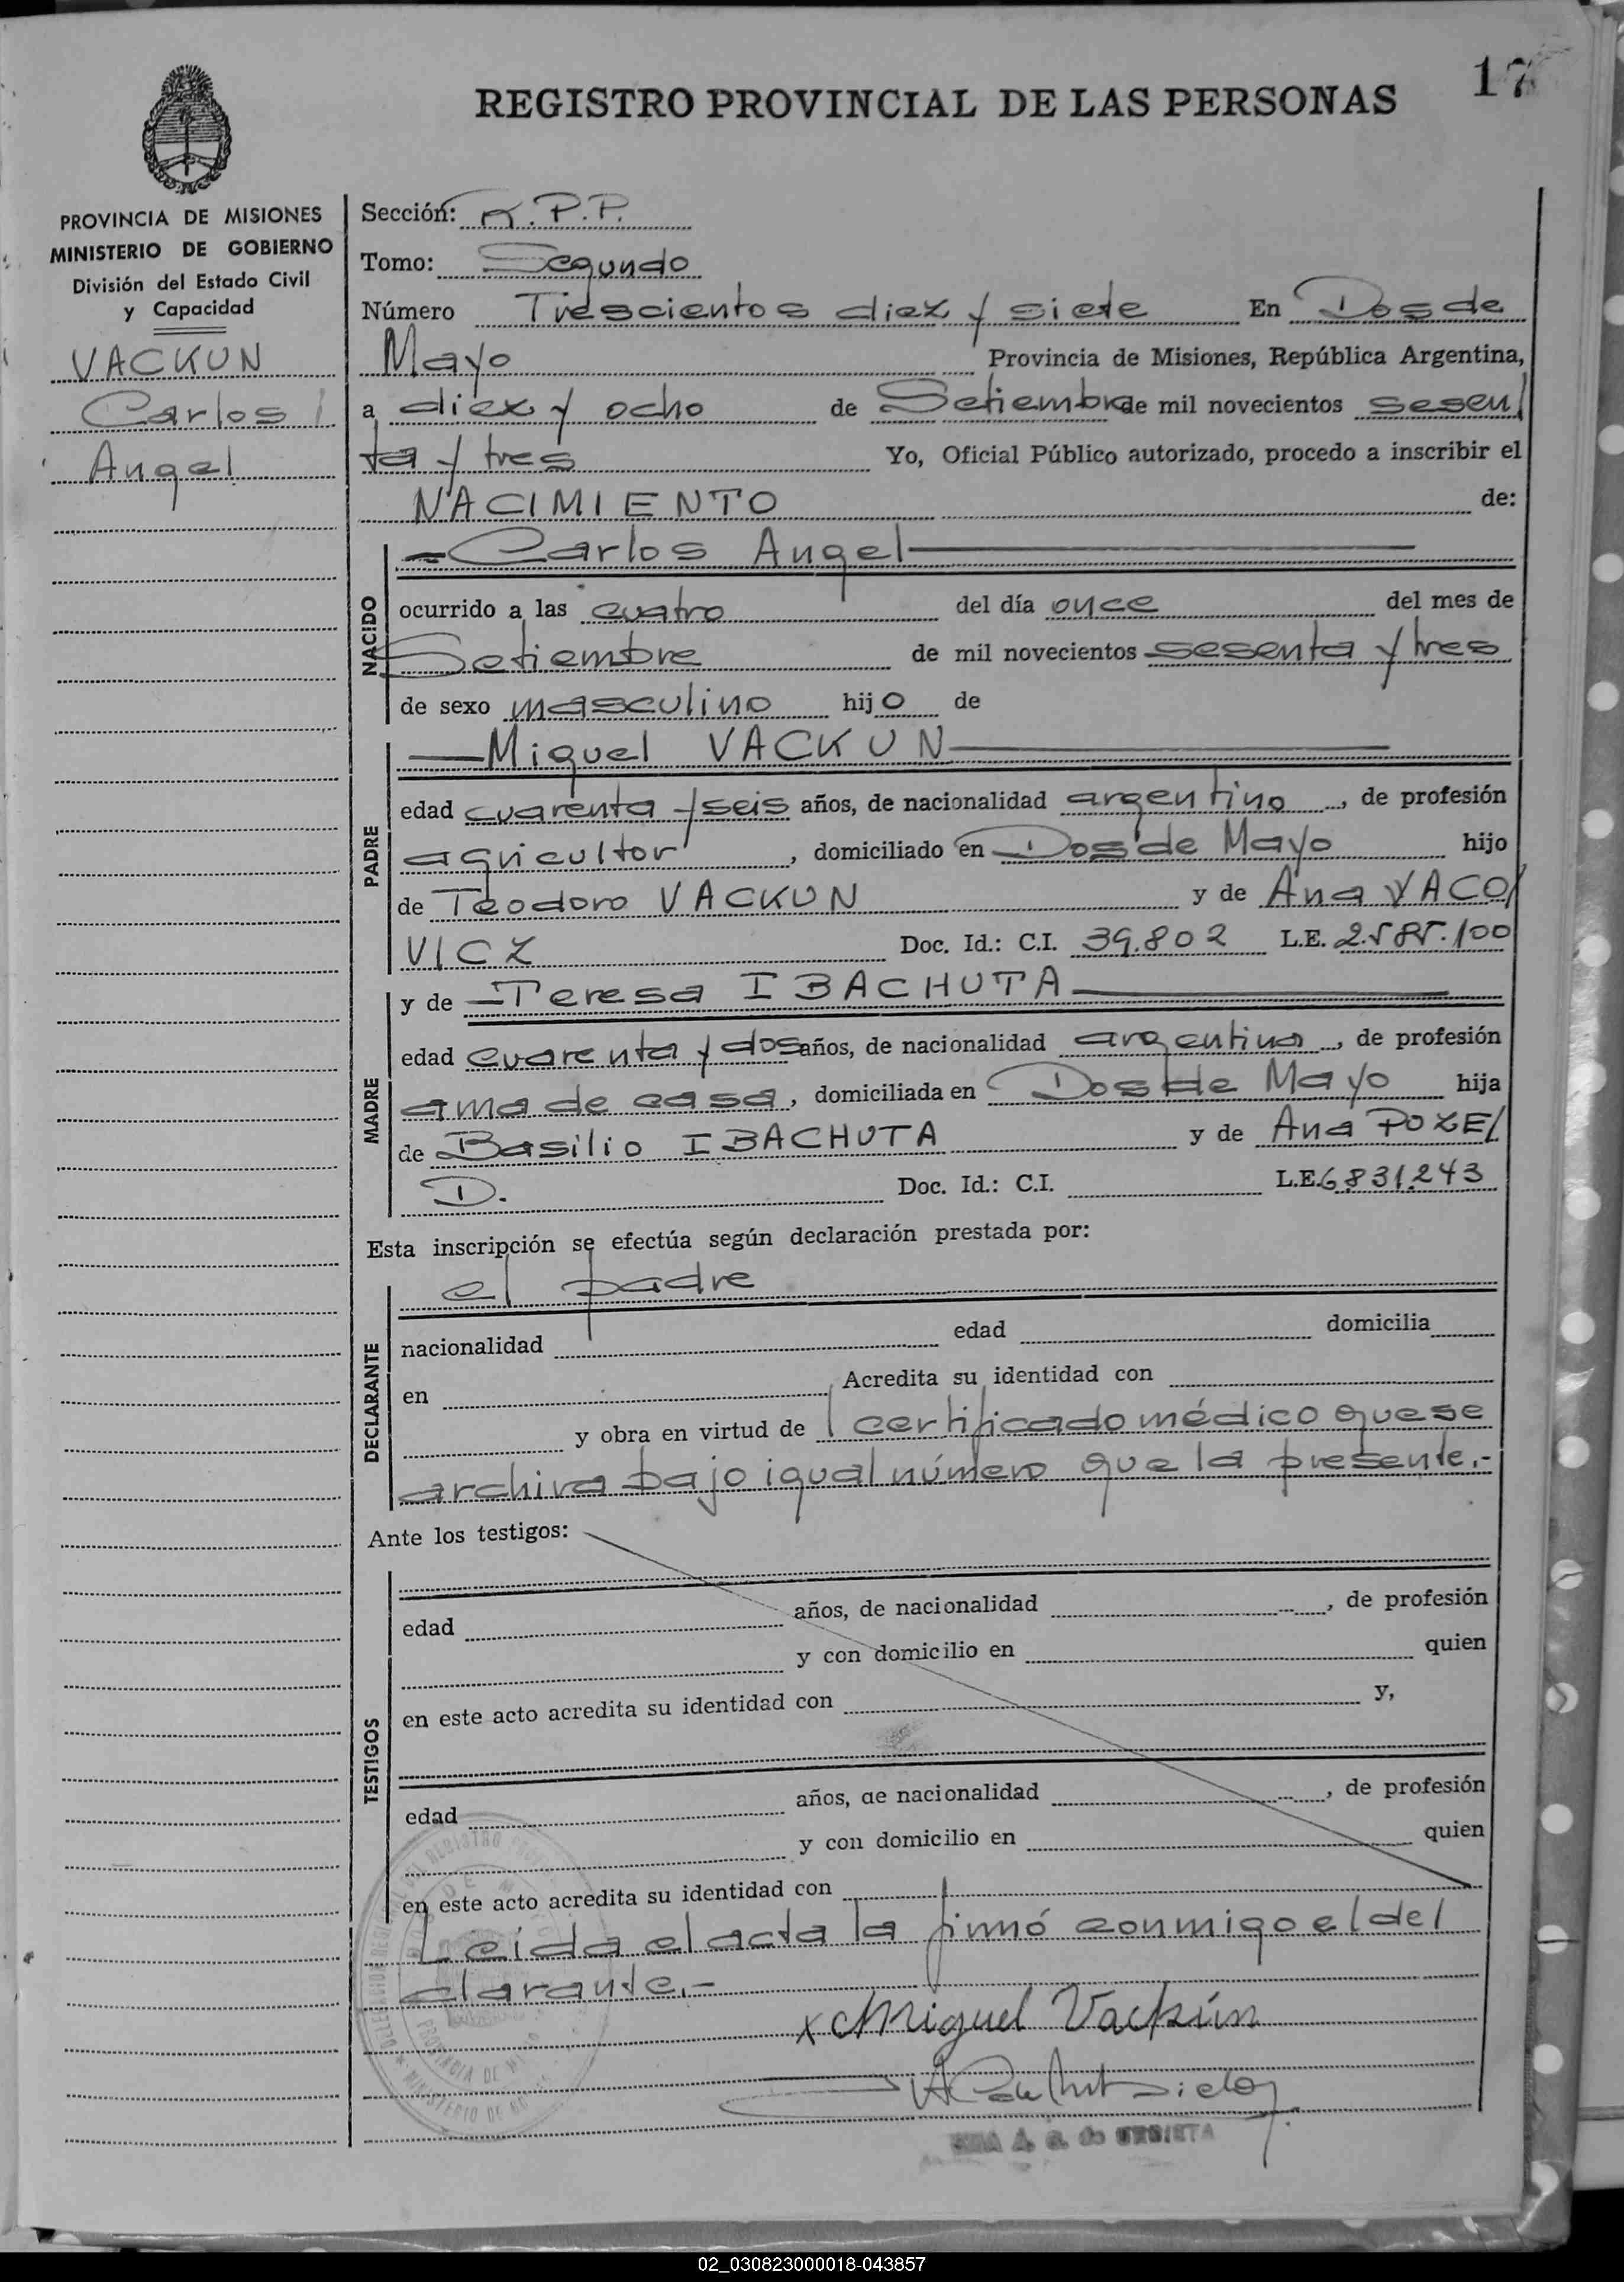 REGISTRO PROVINCIAL DE LAS PERSONAS
17
PROVINCIA DE MISIONES
MINISTERIO DE GOBIERNO
División del Estado Civil
y Capacidad
VACKUN
Carlos
Angel
Sección: R.P.P.
Tomo: Segundo
Número Trescientos diez y siete En Dos de
Mayo Provincia de Misiones, República Argentina,
a diez y ocho de Setiembre de mil novecientos sesen/
ta y tres Yo, Oficial Público autorizado, procedo a inscribir el
NACIMIENTO de:
NACIDO
Carlos Angel
ocurrido a las cuatro del día once del mes de
Setiembre de mil novecientos sesenta y tres
de sexo masculino hijo de
PADRE
Miguel VACKUN
edad cuarenta y seis años, de nacionalidad argentino, de profesión
agricultor, domiciliado en Dos de Mayo hijo
de Teodoro VACKUN y de Ana YACO/
VICZ Doc. Id.: C.I. 39.802 L.E. 2.585.100
MADRE
y de Teresa IBACHUTA
edad cuarenta y dos años, de nacionalidad argentina, de profesión
ama de casa, domiciliada en Dos de Mayo hija
de Basilio IBACHUTA y de Ana POZE/
D. Doc. Id.: C.I. L.E. 6.831.243
Esta inscripción se efectúa según declaración prestada por:
DECLARANTE
el padre
nacionalidad edad domicilia
en Acredita su identidad con
y obra en virtud de certificado médico que se
archiva bajo igual número que la presente.-
Ante los testigos:
TESTIGOS
edad años, de nacionalidad , de profesión
y con domicilio en quien
en este acto acredita su identidad con y,
edad años, de nacionalidad , de profesión
y con domicilio en quien
en este acto acredita su identidad con
Leida el acta la firmó conmigo el de/
clarante.-
x Miguel Vackún
PROVINCIA DE
02_030823000018-043857